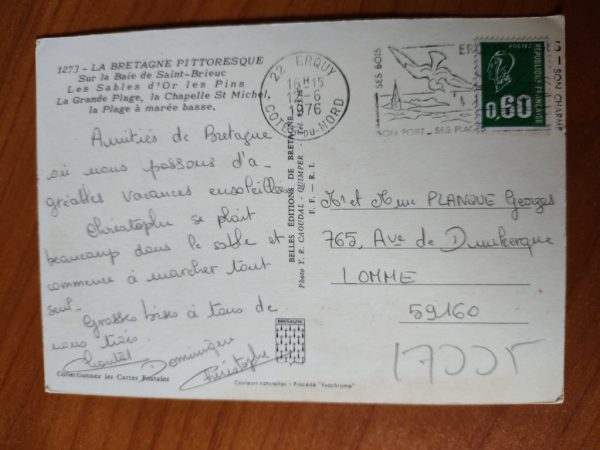 1273 - LA BRETAGNE PITTORESQUE
Sur la Baie de Saint-Brieuc
Les Sables d'Or les Pins
La Grande Plage, la Chapelle St Michel,
la Plage à marée basse,
22 ERQUY
16H15
1976
COTES-DU-NORD
SES BOIS
SON PORT - SES PLAGES
SON CHARME
POSTES
REPUBLIQUE FRANÇAISE
0,60
Amitiés de Bretagne
où nous passons d'a-
gréables vacances ensoleillées
Christophe se plaît
beaucoup dans le sable et
commence à marcher tout
seul.
Grosses bises à tous de
nous trois.
Chantal Dominique
Christophe
BELLES ÉDITIONS DE BRETAGNE
Photo Y. R. CAOUDAL - QUIMPER
F. F. - R. I.
Mr et Mme PLANQUE Georges
765, Ave de Dunkerque
LOMME
59160
BRETAGNE
Collectionnez les Cartes Postales
Couleurs naturelles - Procédé "Yvachrome"